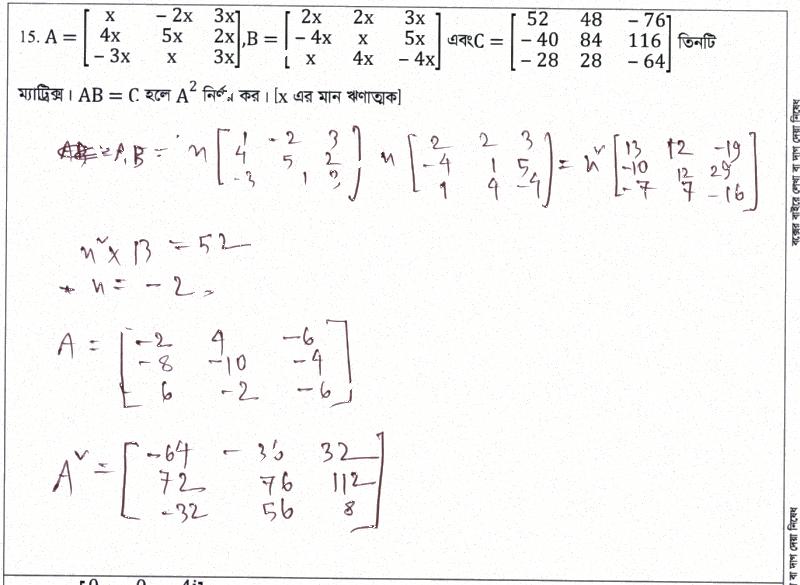 15. A = [x - 2x 3x; 4x 5x 2x; - 3x x 3x], B = [2x 2x 3x; - 4x x 5x; x 4x - 4x] এবং C = [52 48 - 76; - 40 84 116; - 28 28 - 64] তিনটি
ম্যাট্রিক্স। AB = C হলে A² নির্ণয় কর। [x এর মান ঋণাত্মক]
A.B = x [1 -2 3; 4 5 2; -3 1 3] x [2 2 3; -4 1 5; 1 4 -4] = x² [13 12 -19; -10 12 29; -7 7 -16]
x² × 13 = 52
x = -2
A = [-2 4 -6; -8 -10 -4; 6 -2 -6]
A² = [-64 -36 32; 72 76 112; -32 56 8]
বক্সের বাইরে লেখা বা দাগ দেয়া নিষেধ
বা দাগ দেয়া নিষেধ